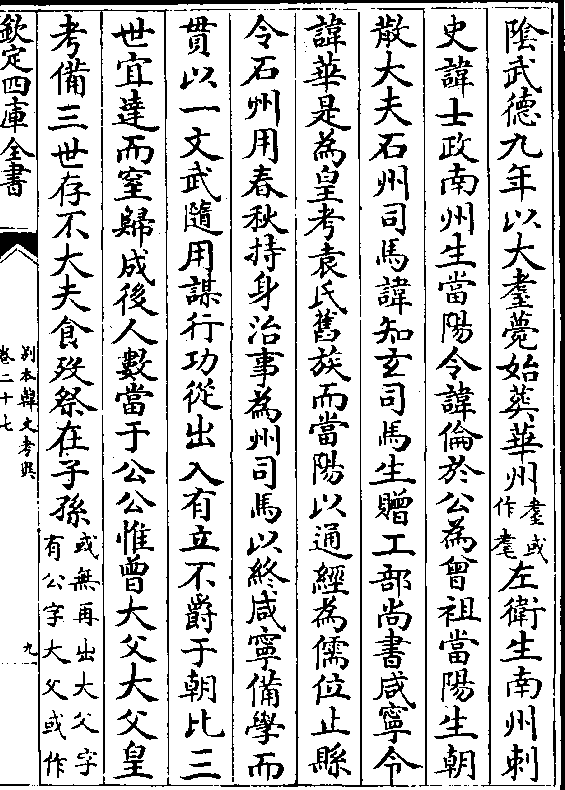 陰武德九年以大耋薨始葬華州耋或作耄左衛生南州刺
史諱士政南州生當陽令諱倫於公為曾祖當陽生朝
散大夫石州司馬諱知玄司馬生贈工部尚書咸寧令
諱華是為皇考袁氏舊族而當陽以通經為儒位止縣
令石州用春秋持身治事為州司馬以終咸寧備學而
貫以一文武隨用謀行功從出入有立不爵于朝比三
世宜達而窒歸成後人數當于公公惟曾大父大父皇
考備三世存不大夫食歿祭在子孫或無再出大父字有公字大父或作
欽定四庫全書
別本韓文考異
卷二十七
九